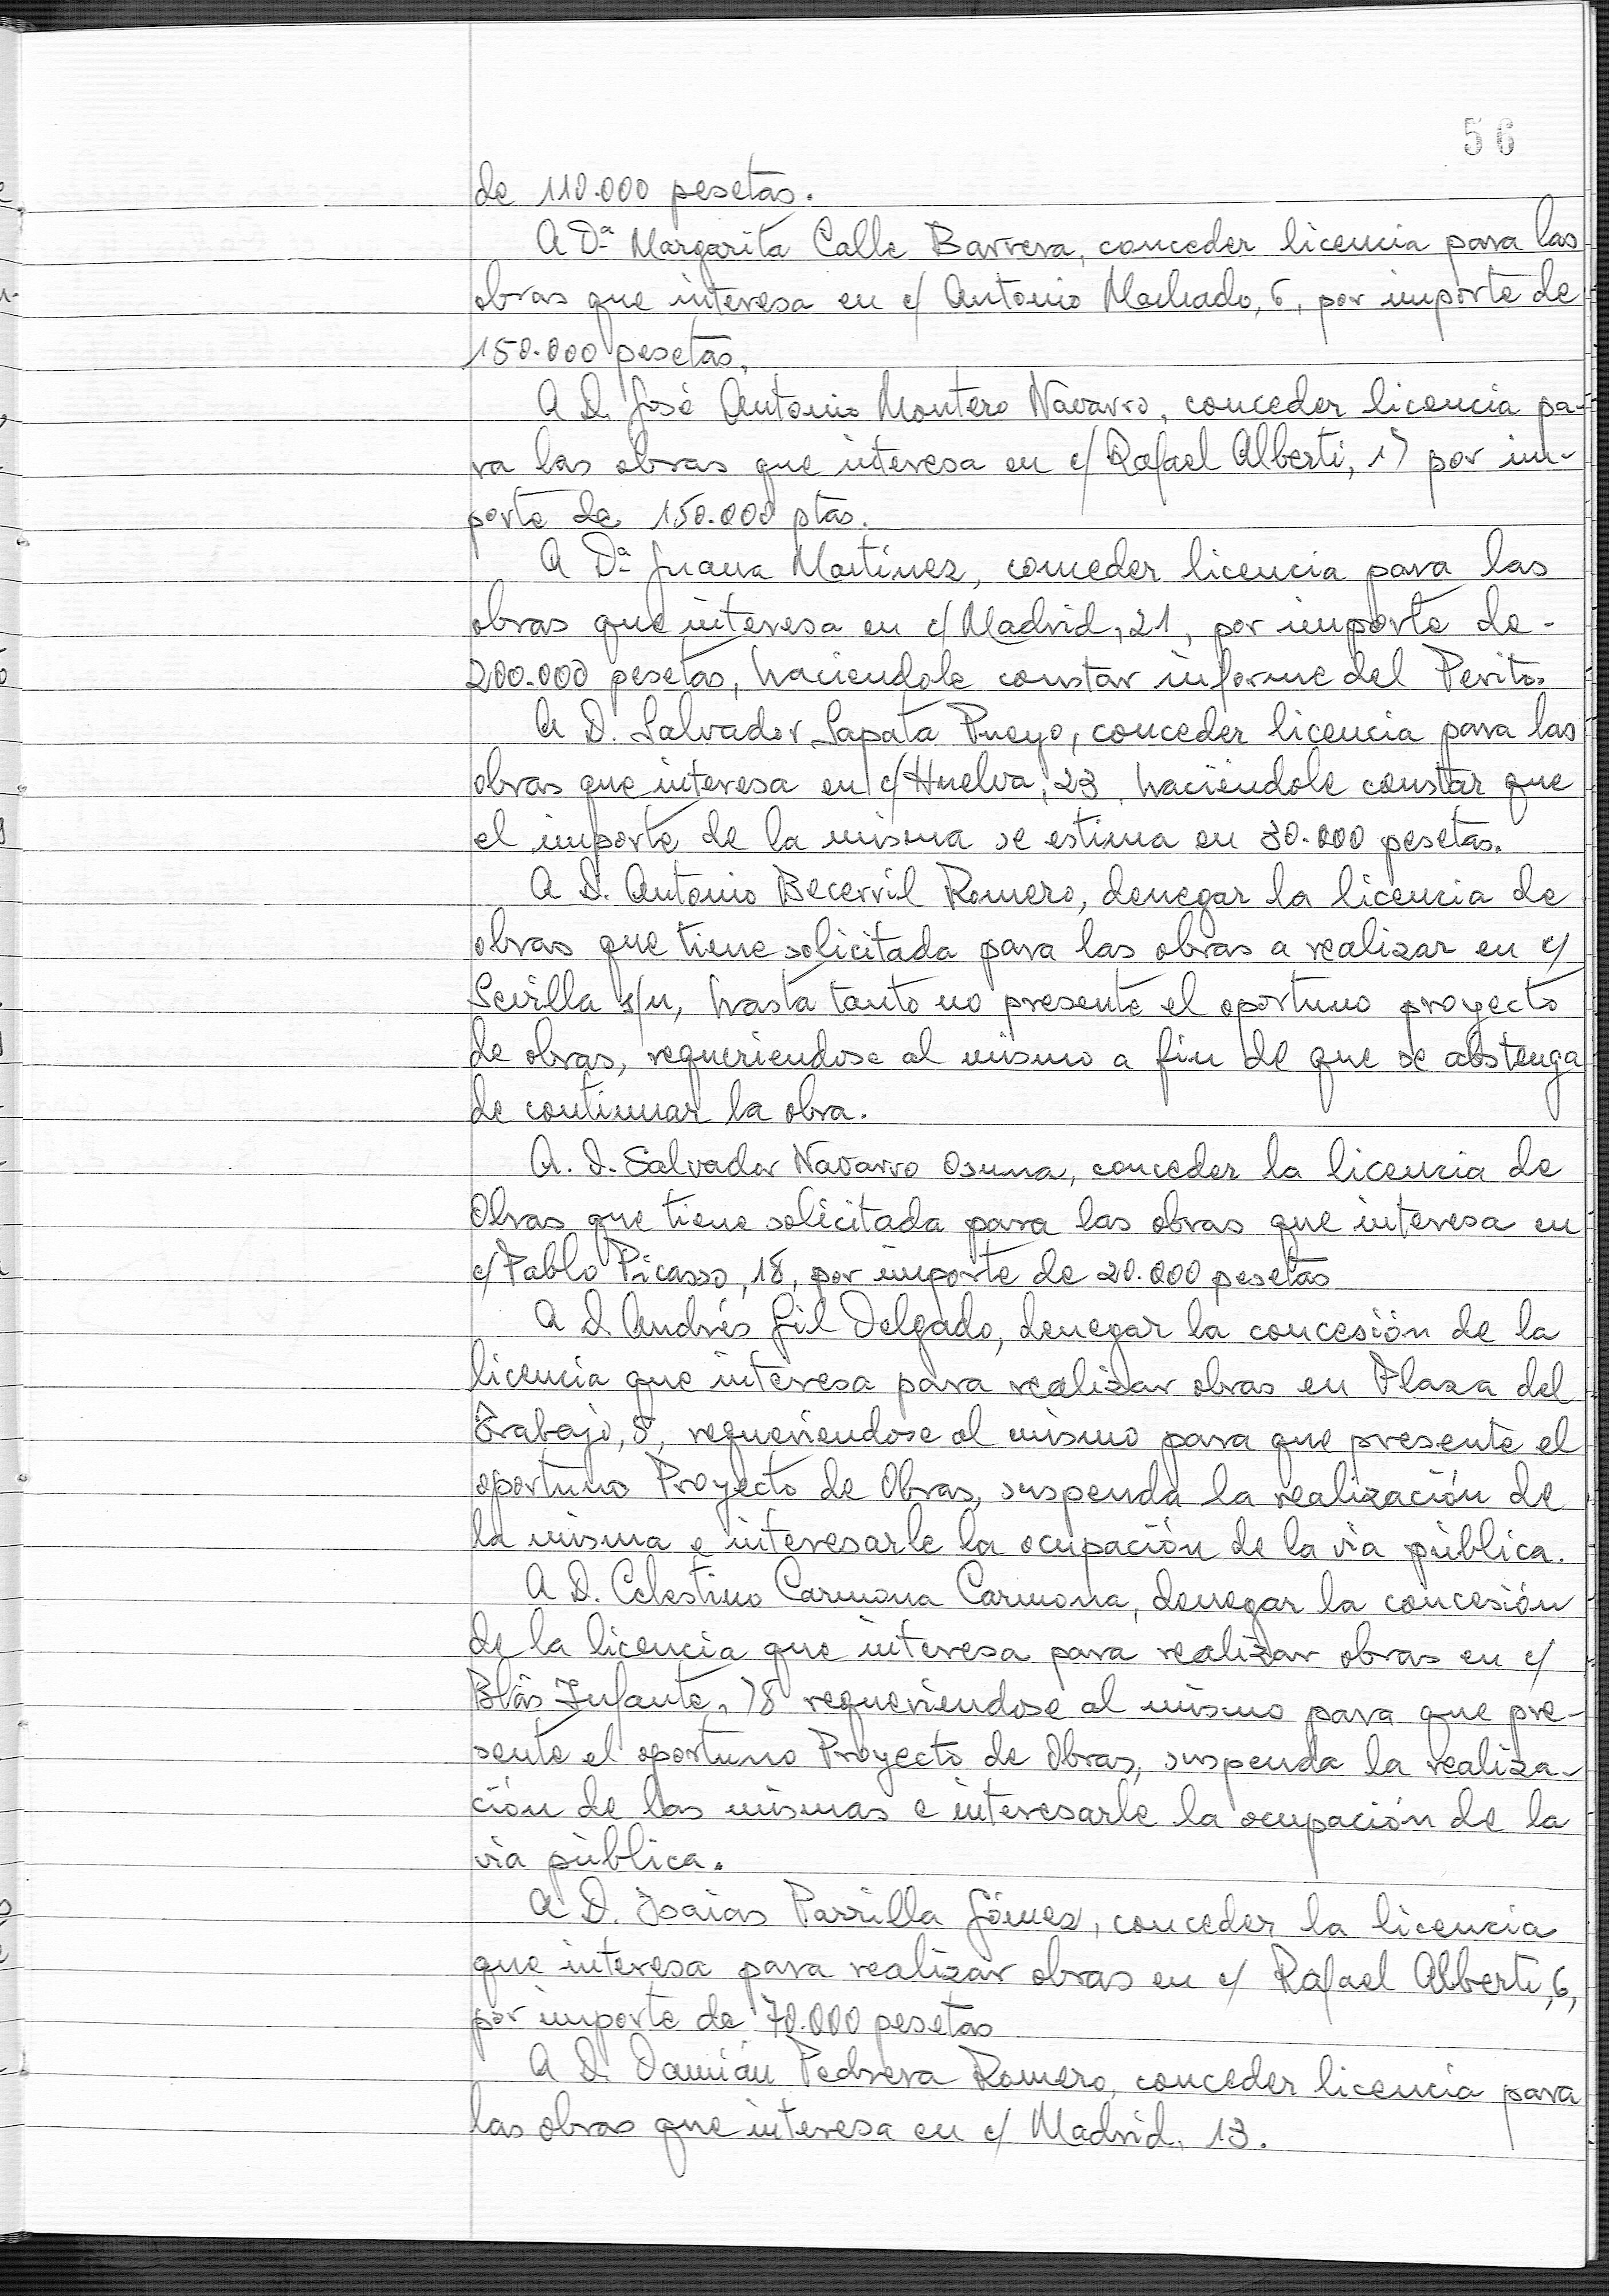 56
de 110.000 pesetas.
A Dª Margarita Calle Barrera, conceder licencia para las
obras que interesa en c/ Antonio Machado, 6, por importe de
150.000 pesetas.
A D. José Antonio Montero Navarro, conceder licencia pa-
ra las obras que interesa en c/ Rafael Alberti, 17 por im-
porte de 150.000 ptas.
A Dª Juana Martinez, conceder licencia para las
obras que interesa en c/ Madrid, 21, por importe de-
200.000 pesetas, haciendole constar informe del Perito.
A D. Salvador Sapata Pueyo, conceder licencia para las
obras que interesa en c/ Huelva, 23, haciéndole constar que
el importe de la misma se estima en 30.000 pesetas.
A D. Antonio Becerril Romero, denegar la licencia de
obras que tiene solicitada para las obras a realizar en c/
Sevilla s/n, hasta tanto no presente el oportuno proyecto
de obras, requeriendose al mismo a fin de que se abstenga
de continuar la obra.
A. D. Salvador Navarro Osuna, conceder la licencia de
Obras que tiene solicitada para las obras que interesa en
c/ Pablo Picasso, 18, por importe de 20.000 pesetas
A D. Andrés Gil Delgado, denegar la concesión de la
licencia que interesa para realizar obras en Plaza del
Trabajo, 8, requeriendose al mismo para que presente el
oportuno Proyecto de Obras, suspenda la realización de
la misma e interesarle la ocupación de la via pública.
A D. Celestino Carmona Carmona, denegar la concesión
de la licencia que interesa para realizar obras en c/
Blás Infante, 78 requeriendose al mismo para que pre-
sente el oportuno Proyecto de Obras, suspenda la realiza-
ción de las mismas e interesarle la ocupación de la
via pública.
A D. Isaias Parrilla Gómez, conceder la licencia
que interesa para realizar obras en c/ Rafael Alberti, 6,
por importe de 70.000 pesetas
A D. Damián Pedrera Romero, conceder licencia para
las obras que interesa en c/ Madrid, 13.